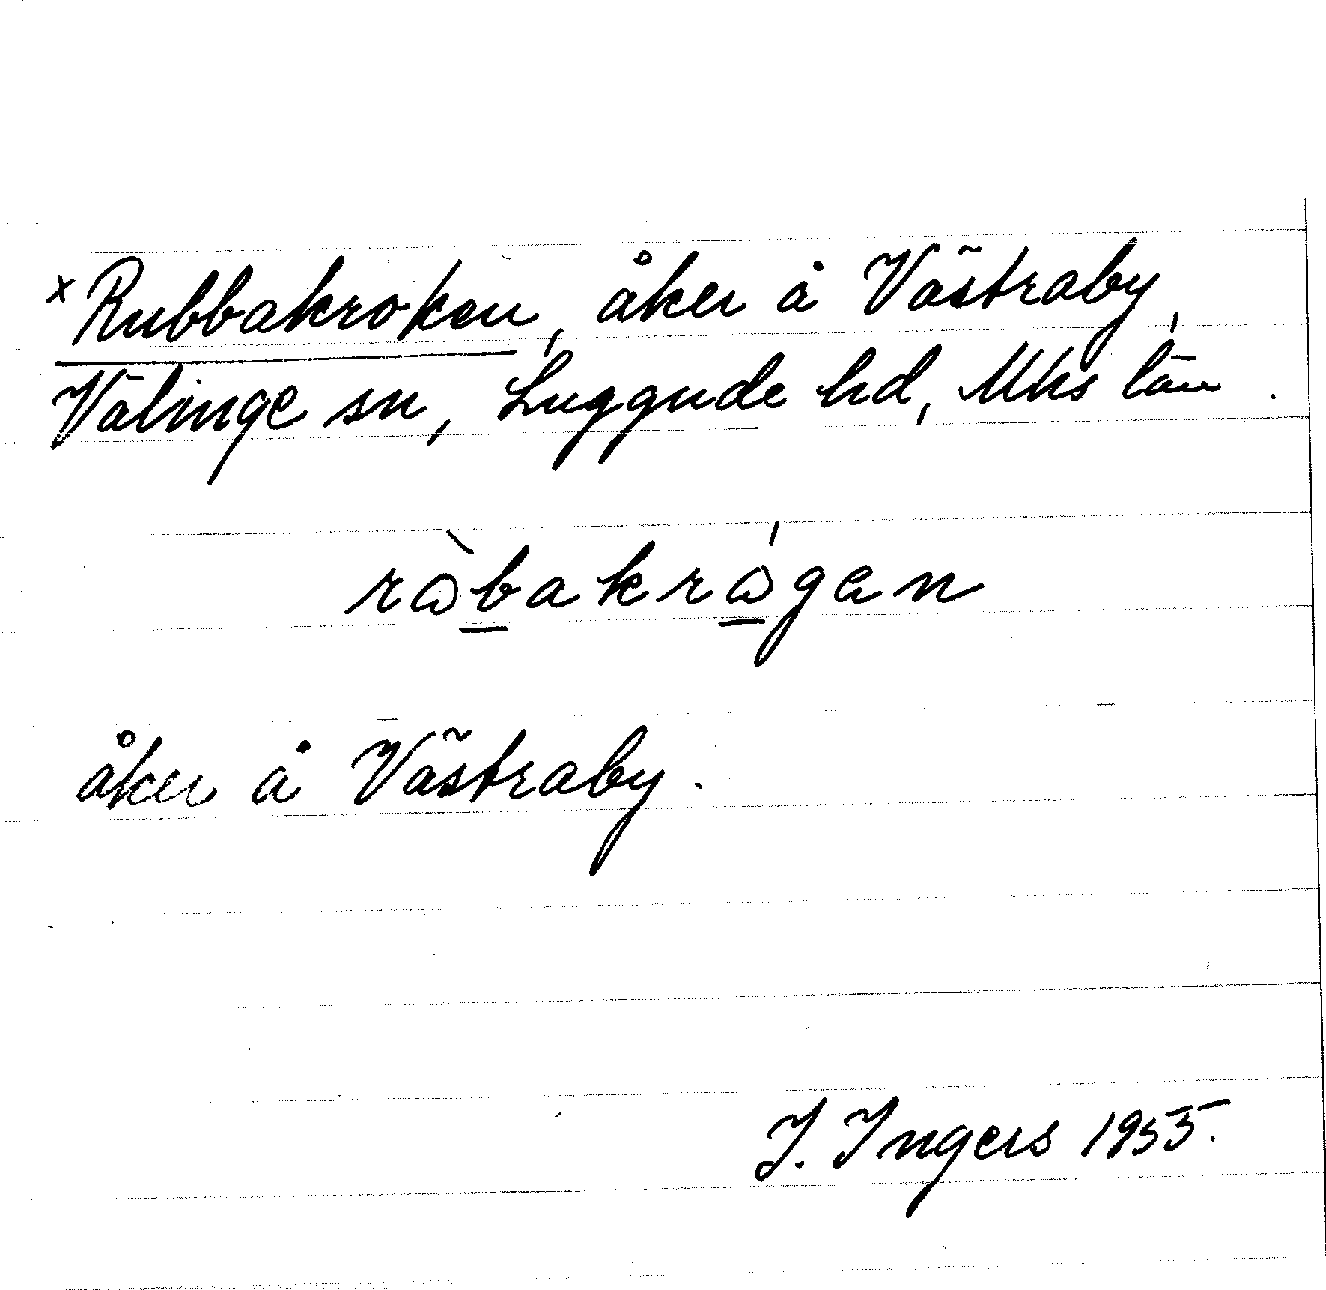 x Rubbakroken, åker å Västraby,
Välinge sn, Luggude hd, Mhs län.
ràbakrágan
åker å Västraby.
I. Ingers 1955.